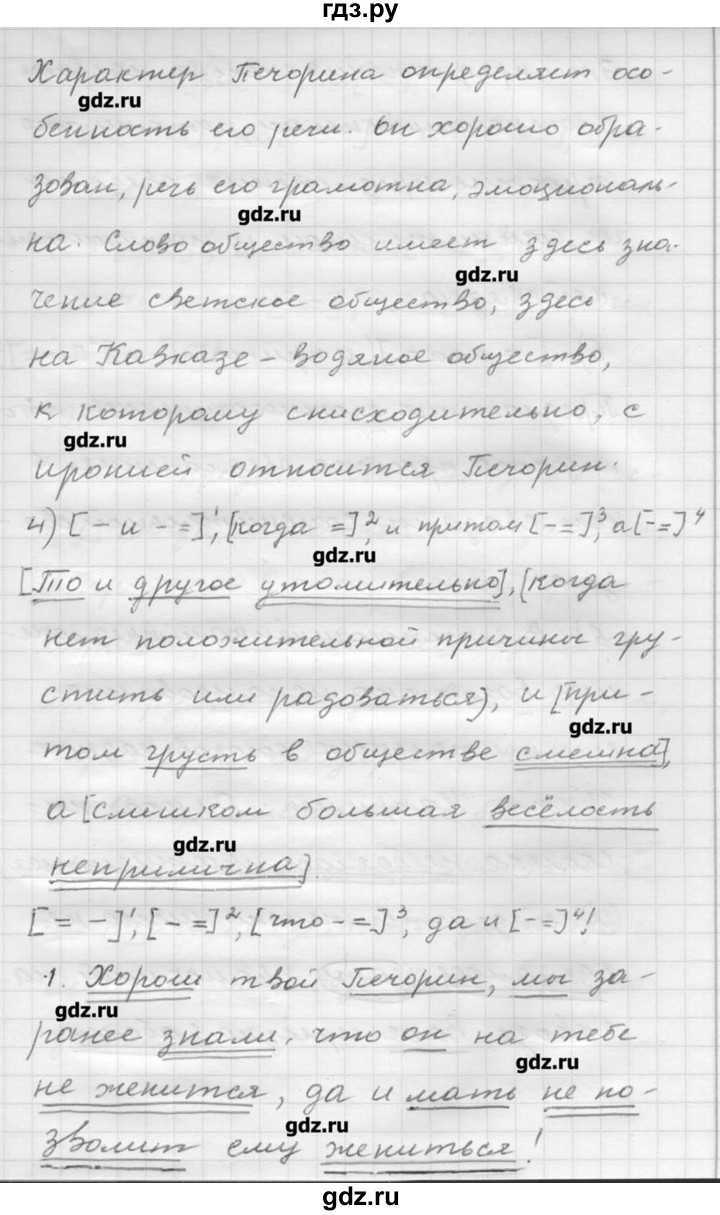 гдз.ру
Характер Печорина определяет осо-
gdz.ru
бенность его речи. Он хорошо обра-
зован, речь его грамотна, эмоциональ-
gdz.ru
на. Слово общество имеет здесь зна-
gdz.ru
чение светское общество, здесь
на Кавказе – водяное общество,
к которому снисходительно, с
gdz.ru
иронией относится Печорин.
4) [– и – =]¹, [когда =]², и притом [– =]³, а [– =]⁴
gdz.ru
[То и другое утомительно], [когда
нет положительной причины гру-
стить или радоваться], и [при-
gdz.ru
том грусть в обществе смешна],
а [слишком большая весёлость
gdz.ru
неприлична].
[= –]¹, [– =]², [что – =]³, да и [– =]⁴!
1. Хорош твой Печорин, мы за-
gdz.ru
ранее знали, что он на тебе
gdz.ru
не женится, да и мать не по-
gdz.ru
зволит ему жениться!
gdz.ru